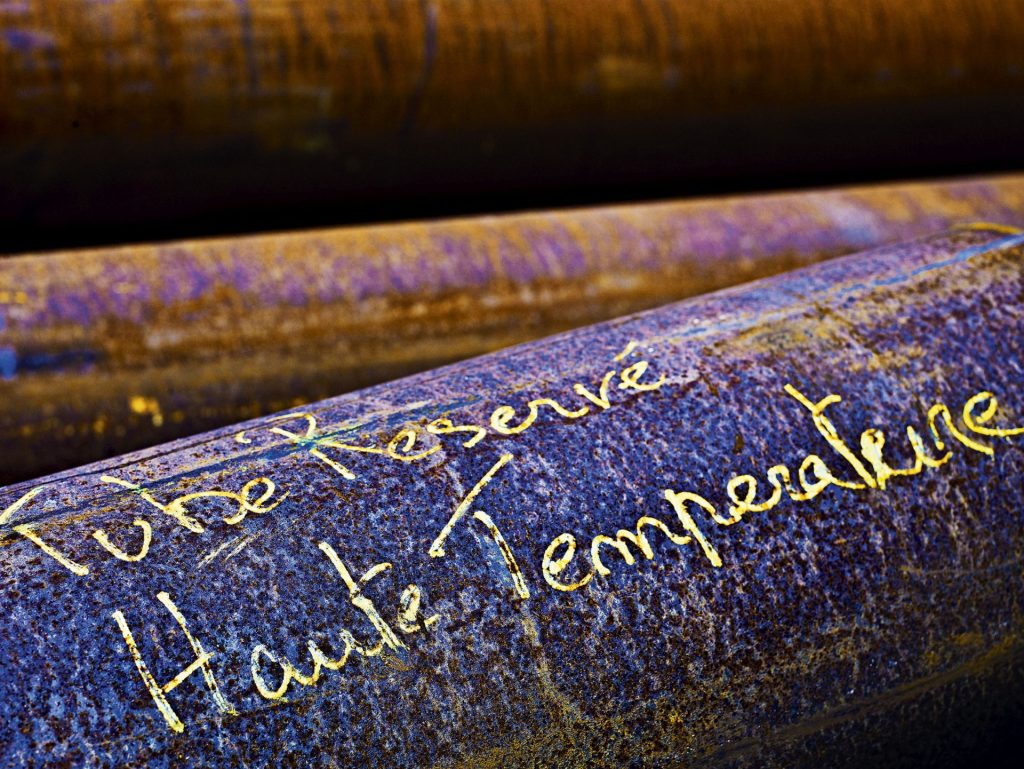 Tube Reservé
Haute Temperateure